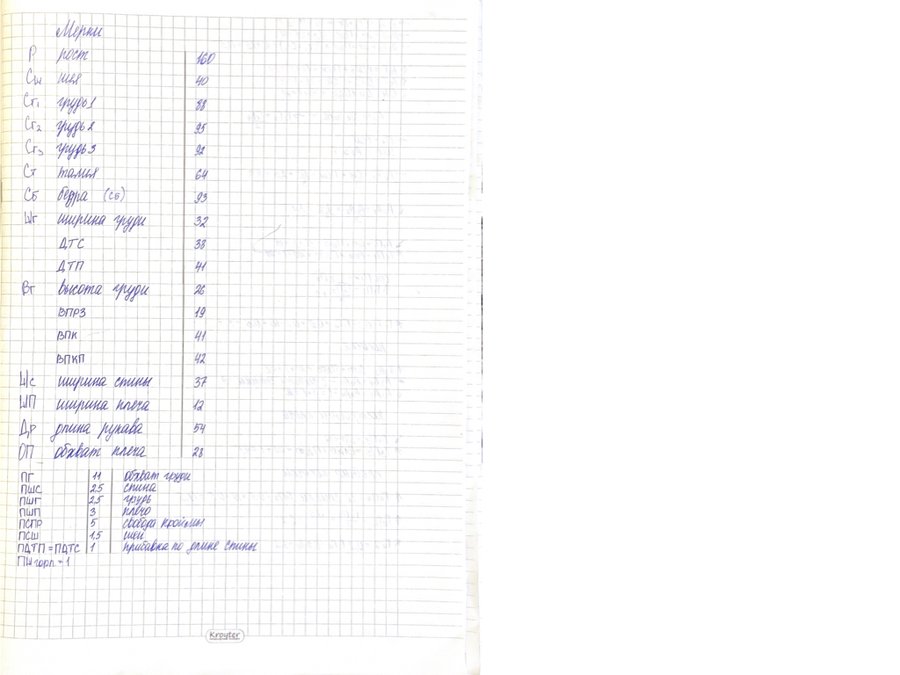 Мерки
Р рост 160
Сш шея 40
Сг1 грудь1 88
Сг2 грудь2 95
Сг3 грудь3 92
Ст талия 64
Сб бедра (Сб) 93
Шг ширина груди 32
ДТС 38
ДТП 41
Вг высота груди 26
ВПРЗ 19
ВПК 41
ВПКП 42
Шс ширина спины 37
ШП ширина плеча 12
Др длина рукава 54
ОП обхват плеча 28
ПГ 11 обхват груди
ПШС 2,5 спина
ПШГ 2,5 грудь
ПШП 3 плечо
ПСПР 5 свобода проймы
ПСШ 1,5 шеи
ПДТП = ПДТС 1 прибавка по длине спины
ПШ горл - 1
Kroyter